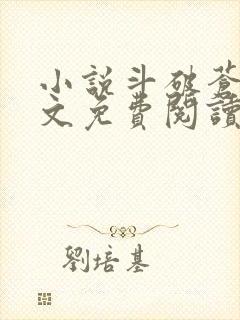 小說斗破蒼
文免費閱讀
劉培基